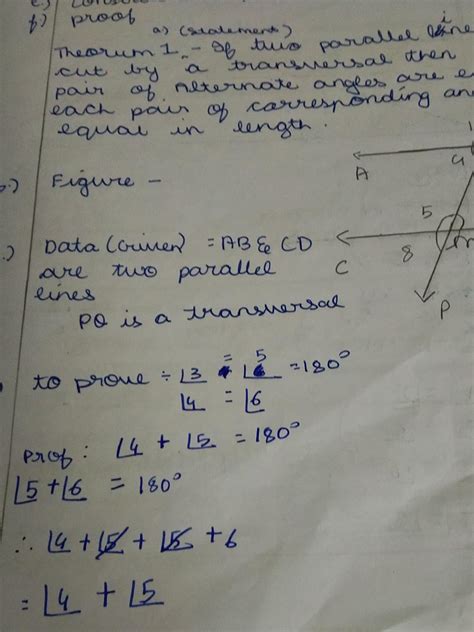 f) proof
a) (statement)
Theorum 1 - If two parallel line
cut by a transversal then
pair of Alternate angles are e
each pair of corresponding an
equal in length.
b.) Figure -
A
4
5
8
C
P
.) Data (Given) = AB & CD
are two parallel
lines
PQ is a transversal
to prove ÷ ∠3 = ∠5 = 180°
∠4 = ∠6
Prof: ∠4 + ∠5 = 180°
∠5 + ∠6 = 180°
∴ ∠4 + ∠5 + ∠5 + 6
= ∠4 + ∠5